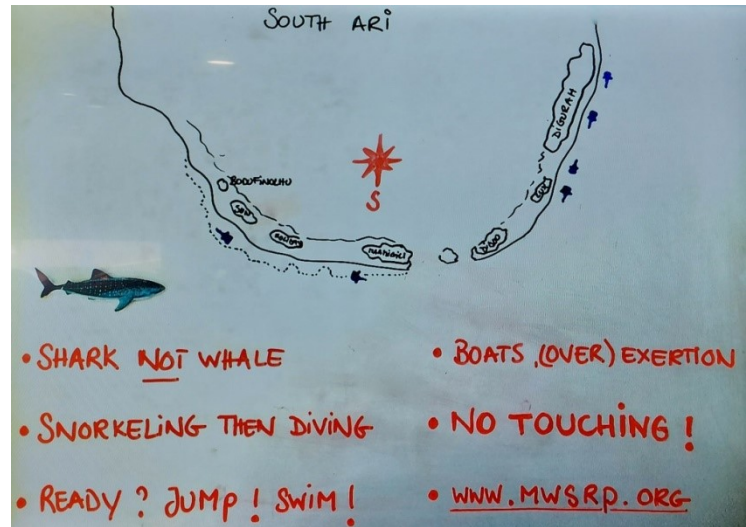 SOUTH ARI
DIGURAH
BODUFINOLHU
SUN
S
DIDDO
• SHARK NOT WHALE
• SNORKELING THEN DIVING
• READY? JUMP! SWIM!
• BOATS, (OVER) EXERTION
• NO TOUCHING!
• WWW.MWSRP.ORG